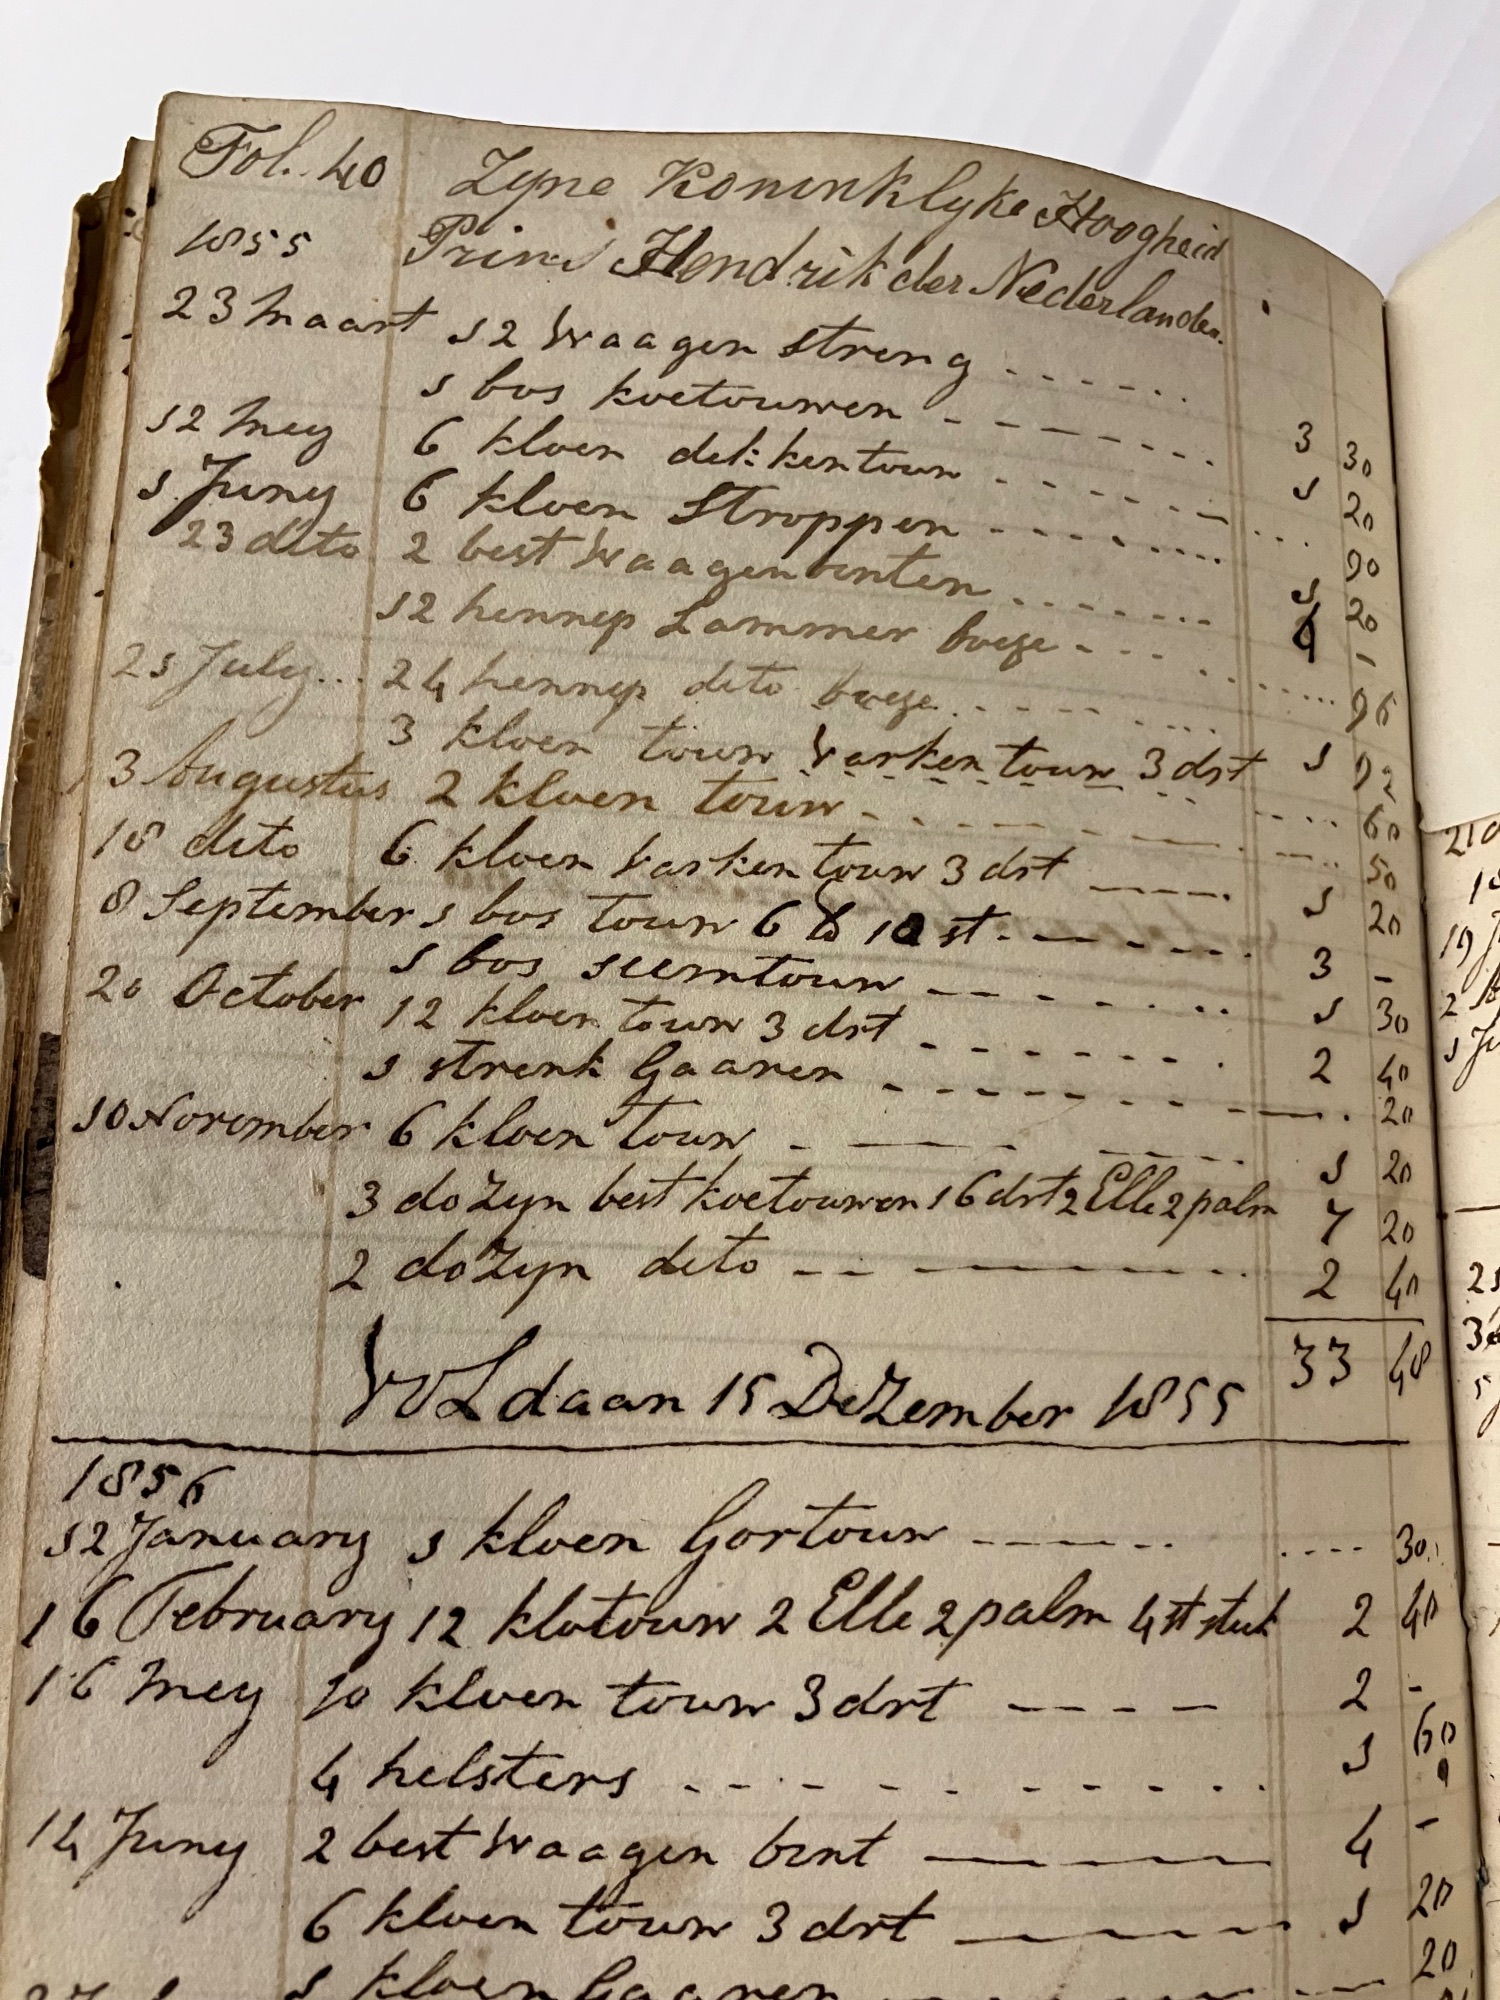 Fol. 40 Zyne Koninklyke Hoogheid
1855 Prins Hendrik der Nederlanden.
23 maart 12 Waagen streng 3 30
1 bos koetouwen 1 20
12 mey 6 kloen dekkentouw 90
1 Juny 6 kloen stroppen 1 20
23 dito 2 best Waagenbinten 4 -
12 hennep Lammer boeze 96
21 July 24 hennep dito boeze 1 92
3 kloen touw Varkentouw 3 drt 60
3 Augustus 2 kloen touw 50
18 dito 6 kloen Varkentouw 3 drt 1 20
8 September 1 bos touw 6 12 st 3 -
1 bos seemtouw 1 30
20 October 12 kloen touw 3 drt 2 40
1 strenk Gaaren 20
10 November 6 kloen touw 1 20
3 doZyn best koetouwen 16 drt 2 Elle 2 palm 7 20
2 doZyn dito 2 40
33 48
VOLdaan 15 DeZember 1855
1856
12 January 1 kloen Gortouw 30
16 February 12 klotouw 2 Elle 2 palm 4 st stuk 2 40
16 mey 10 kloen touw 3 drt 2 -
4 helsters 1 60
14 Juny 2 best Waagen bint 4 -
6 kloen touw 3 drt 1 20
1 kloen Gaaren 20